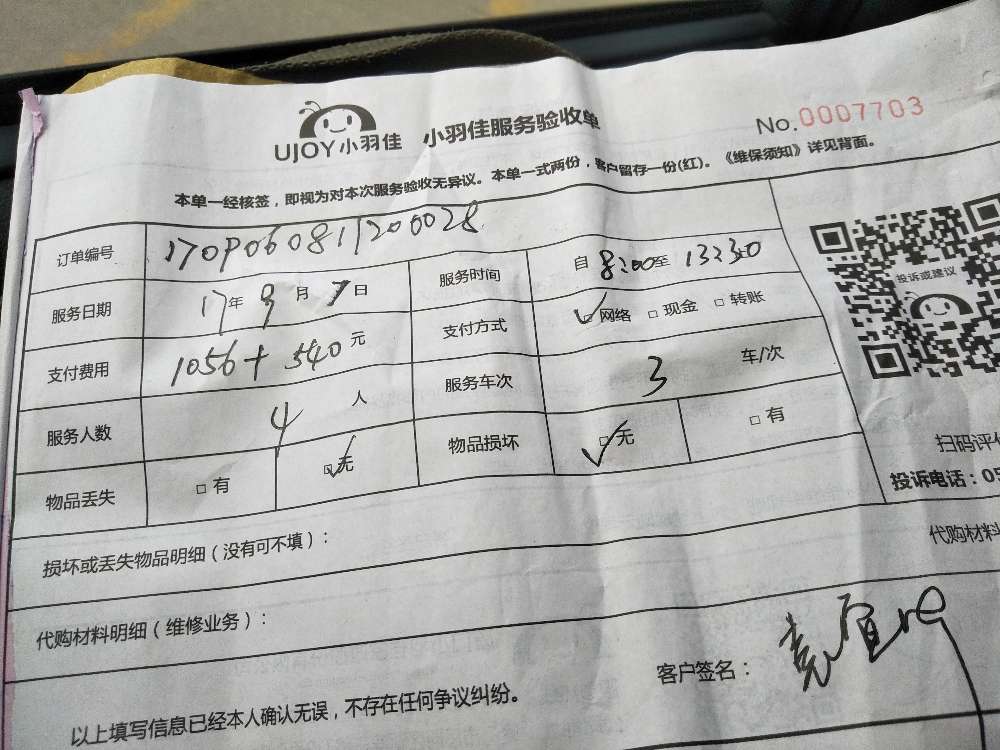 UJOY小羽佳 小羽佳服务验收单 No.0007703
本单一经核签，即视为对本次服务验收无异议。本单一式两份，客户留存一份(红)。《维保须知》详见背面。
订单编号 170906081200028
服务日期 17年 9月 7日 服务时间 自 8:00至 13:30
支付费用 1056+540元 支付方式 □网络 □现金 □转账
服务人数 4 人 服务车次 3 车/次
物品丢失 □有 □无 物品损坏 □无 □有
投诉或建议
扫码评价
投诉电话：05
损坏或丢失物品明细（没有可不填）：
代购材料明细（维修业务）：
代购材料
客户签名：
以上填写信息已经本人确认无误，不存在任何争议纠纷。